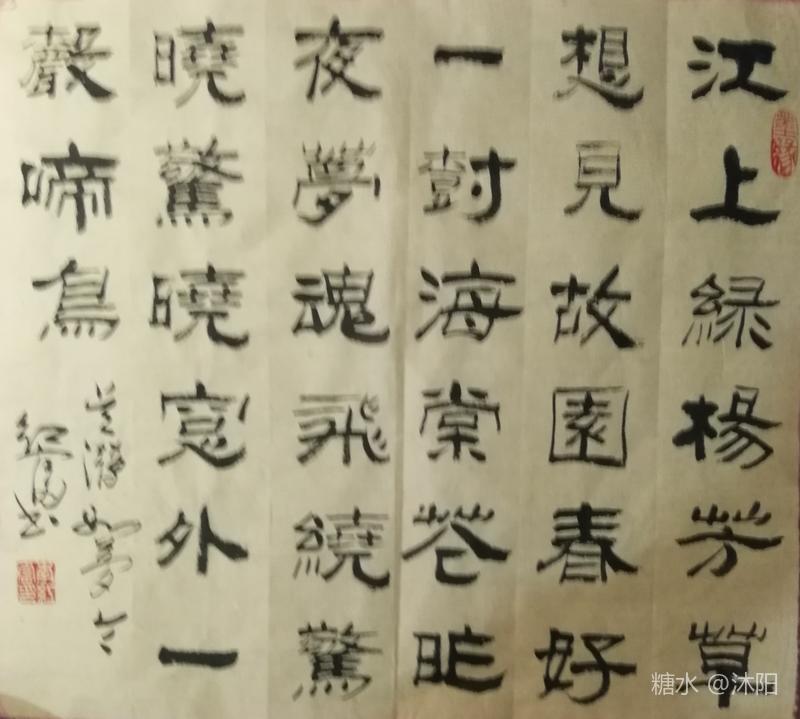 江上緑楊芳草
想見故園春好
一尌海棠花昨
夜夢魂飛繞驚
曉驚曉窓外一
聲啼鳥
吴潛如夢令
書
糖水 @沐阳